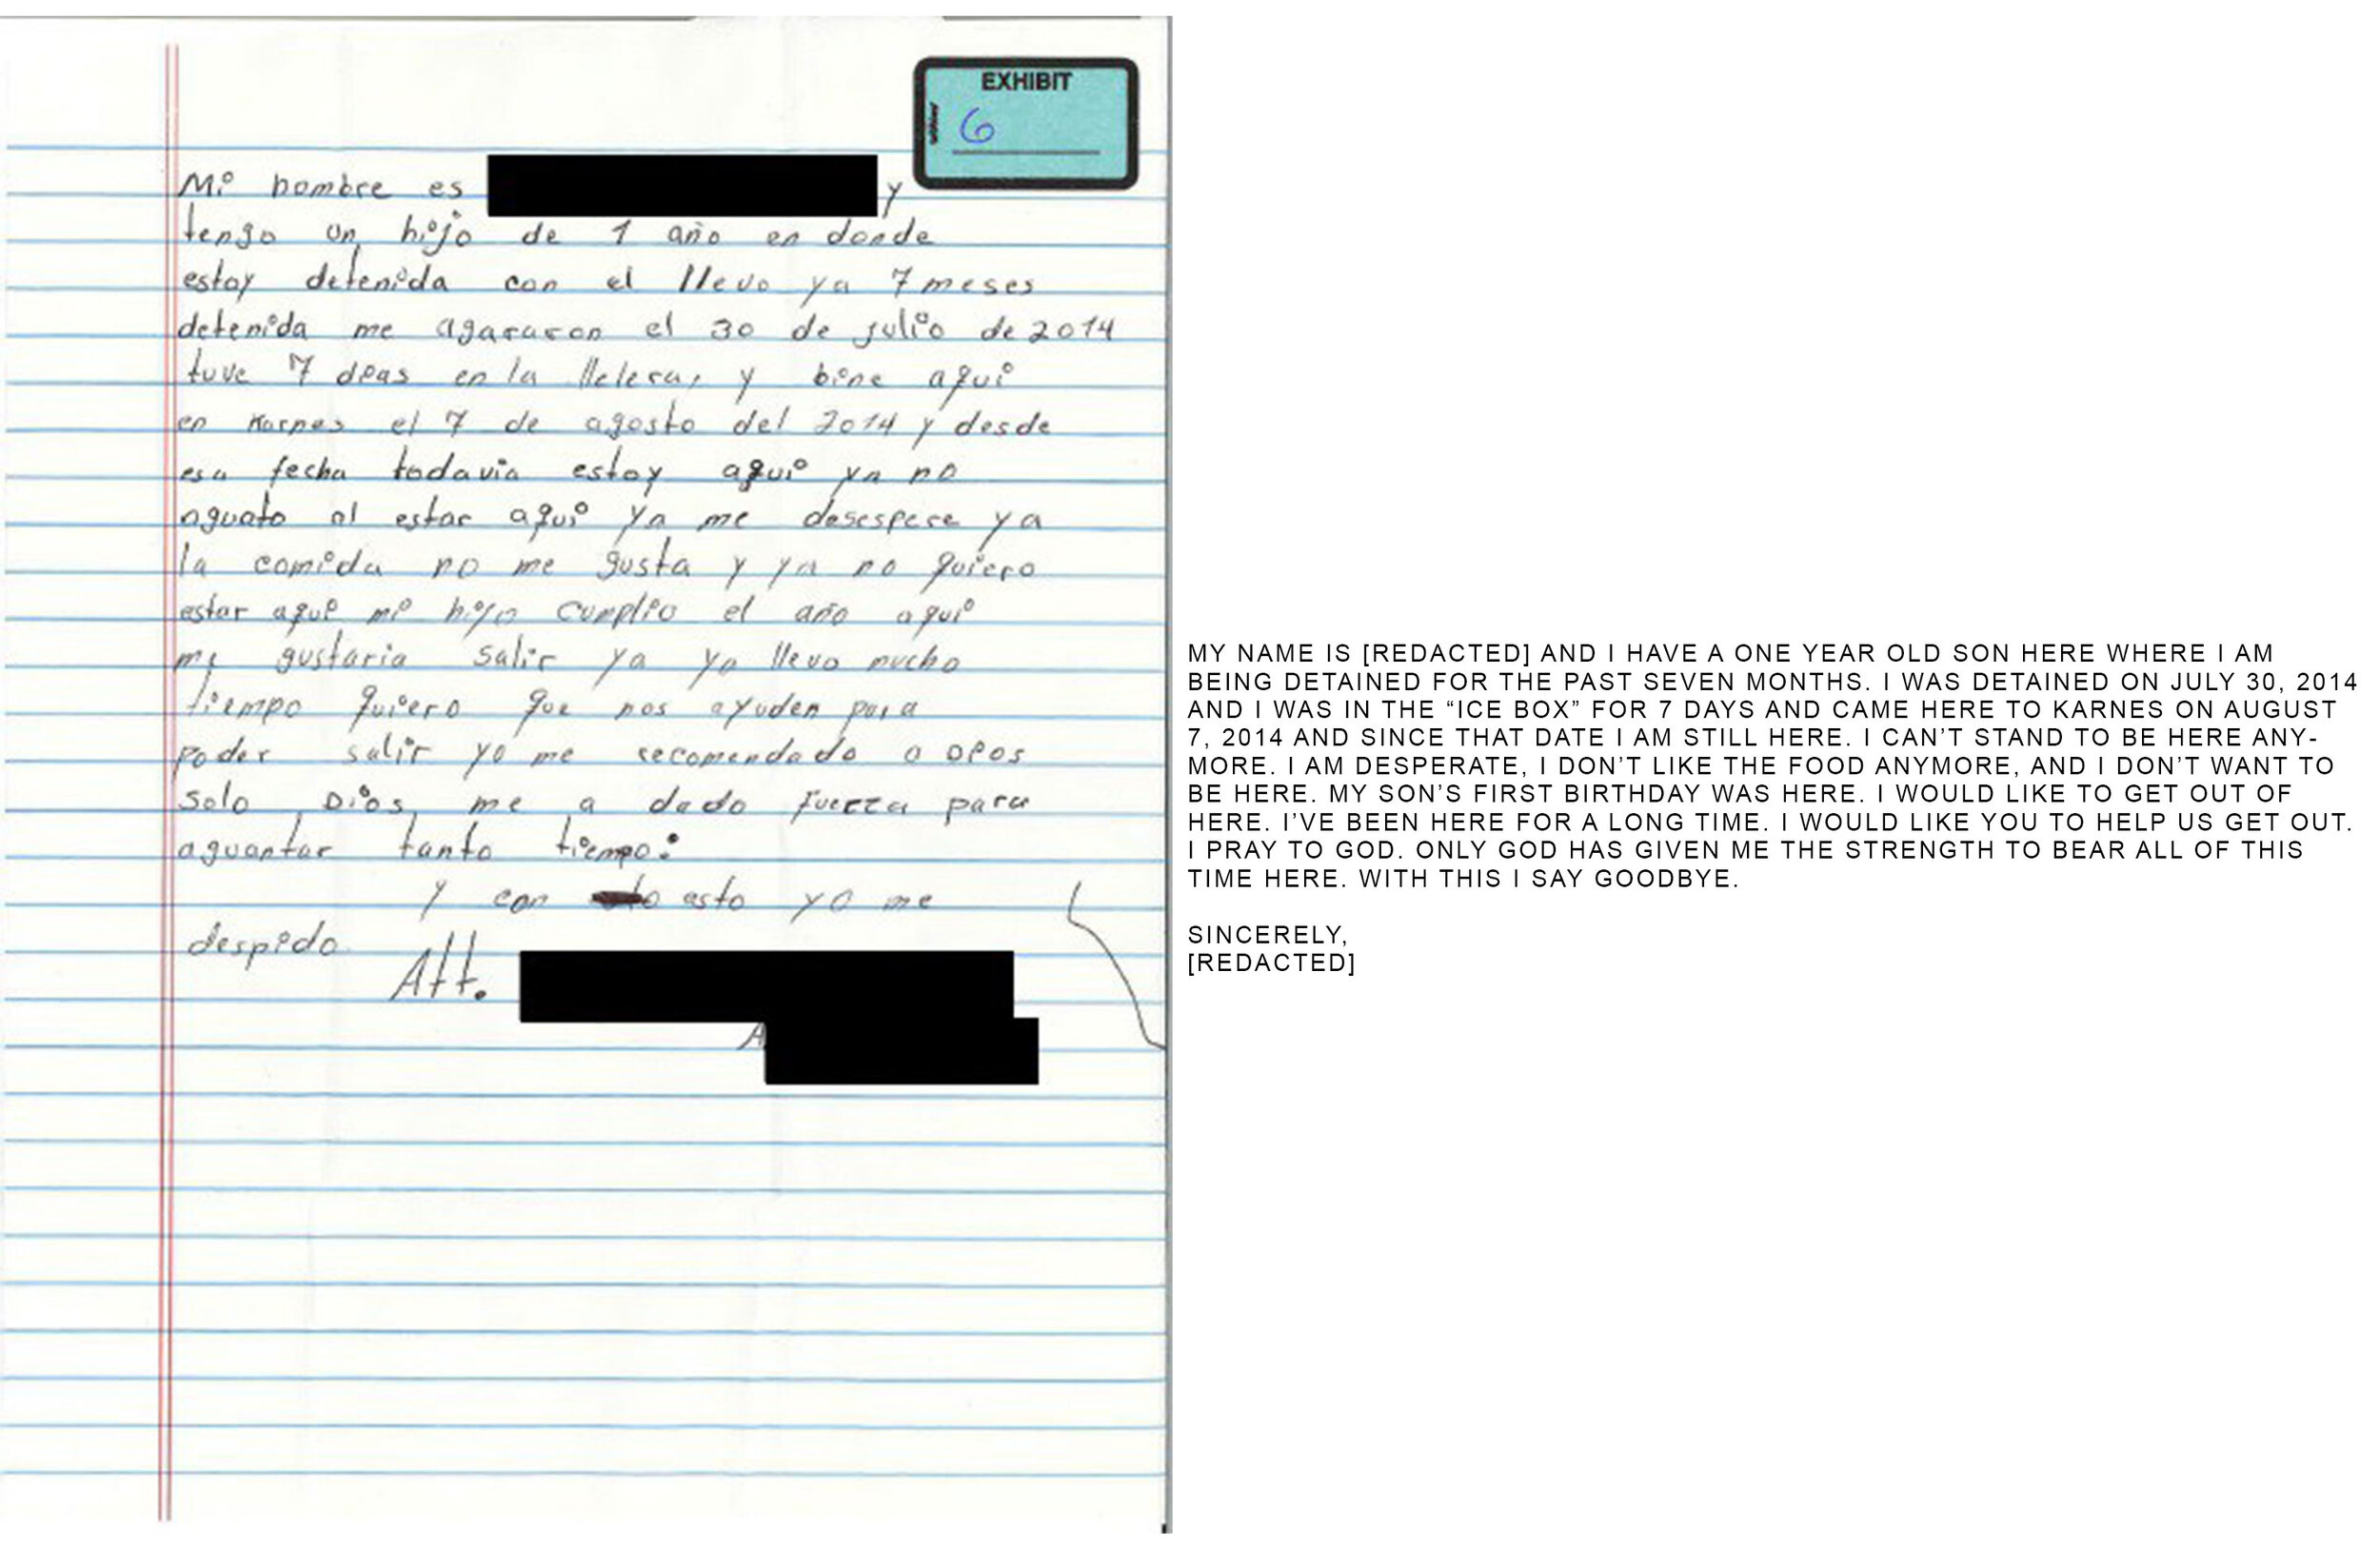 EXHIBIT
6
Mi nombre es y
tengo un hijo de 1 año en donde
estoy detenida con el llevo ya 7 meses
detenida me agararon el 30 de julio de 2014
tuve 7 dias en la llelera, y bine aqui
en Karnes el 7 de agosto del 2014 y desde
esa fecha todavia estoy aqui ya no
aguato al estar aqui ya me desespere ya
la comida no me gusta y ya no quiero
estar aqui mi hijo cumplio el año aqui
me gustaria salir ya yo llevo mucho
tiempo quiero que nos ayuden para
poder salir yo me recomendado a Dios
solo Dios me a dado fuerza para
aguantar tanto tiempo:
y con esto yo me
despido.
Att.
A
MY NAME IS [REDACTED] AND I HAVE A ONE YEAR OLD SON HERE WHERE I AM
BEING DETAINED FOR THE PAST SEVEN MONTHS. I WAS DETAINED ON JULY 30, 2014
AND I WAS IN THE “ICE BOX” FOR 7 DAYS AND CAME HERE TO KARNES ON AUGUST
7, 2014 AND SINCE THAT DATE I AM STILL HERE. I CAN’T STAND TO BE HERE ANY-
MORE. I AM DESPERATE, I DON’T LIKE THE FOOD ANYMORE, AND I DON’T WANT TO
BE HERE. MY SON’S FIRST BIRTHDAY WAS HERE. I WOULD LIKE TO GET OUT OF
HERE. I’VE BEEN HERE FOR A LONG TIME. I WOULD LIKE YOU TO HELP US GET OUT.
I PRAY TO GOD. ONLY GOD HAS GIVEN ME THE STRENGTH TO BEAR ALL OF THIS
TIME HERE. WITH THIS I SAY GOODBYE.
SINCERELY,
[REDACTED]